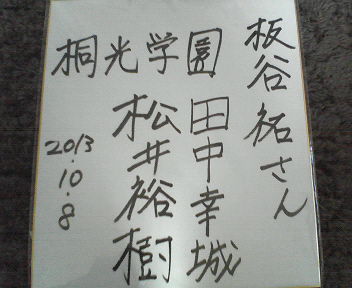 板谷祐さん
桐光学園
田中幸城
松井裕樹
2013.10.8